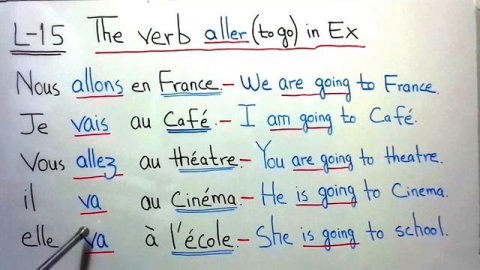 L-15 The verb aller (to go) in Ex
Nous allons en France. - We are going to France.
Je vais au Café. - I am going to Café.
Vous allez au théatre. - You are going to theatre.
il va au Cinéma. - He is going to Cinema.
elle va à l'école. - She is going to school.